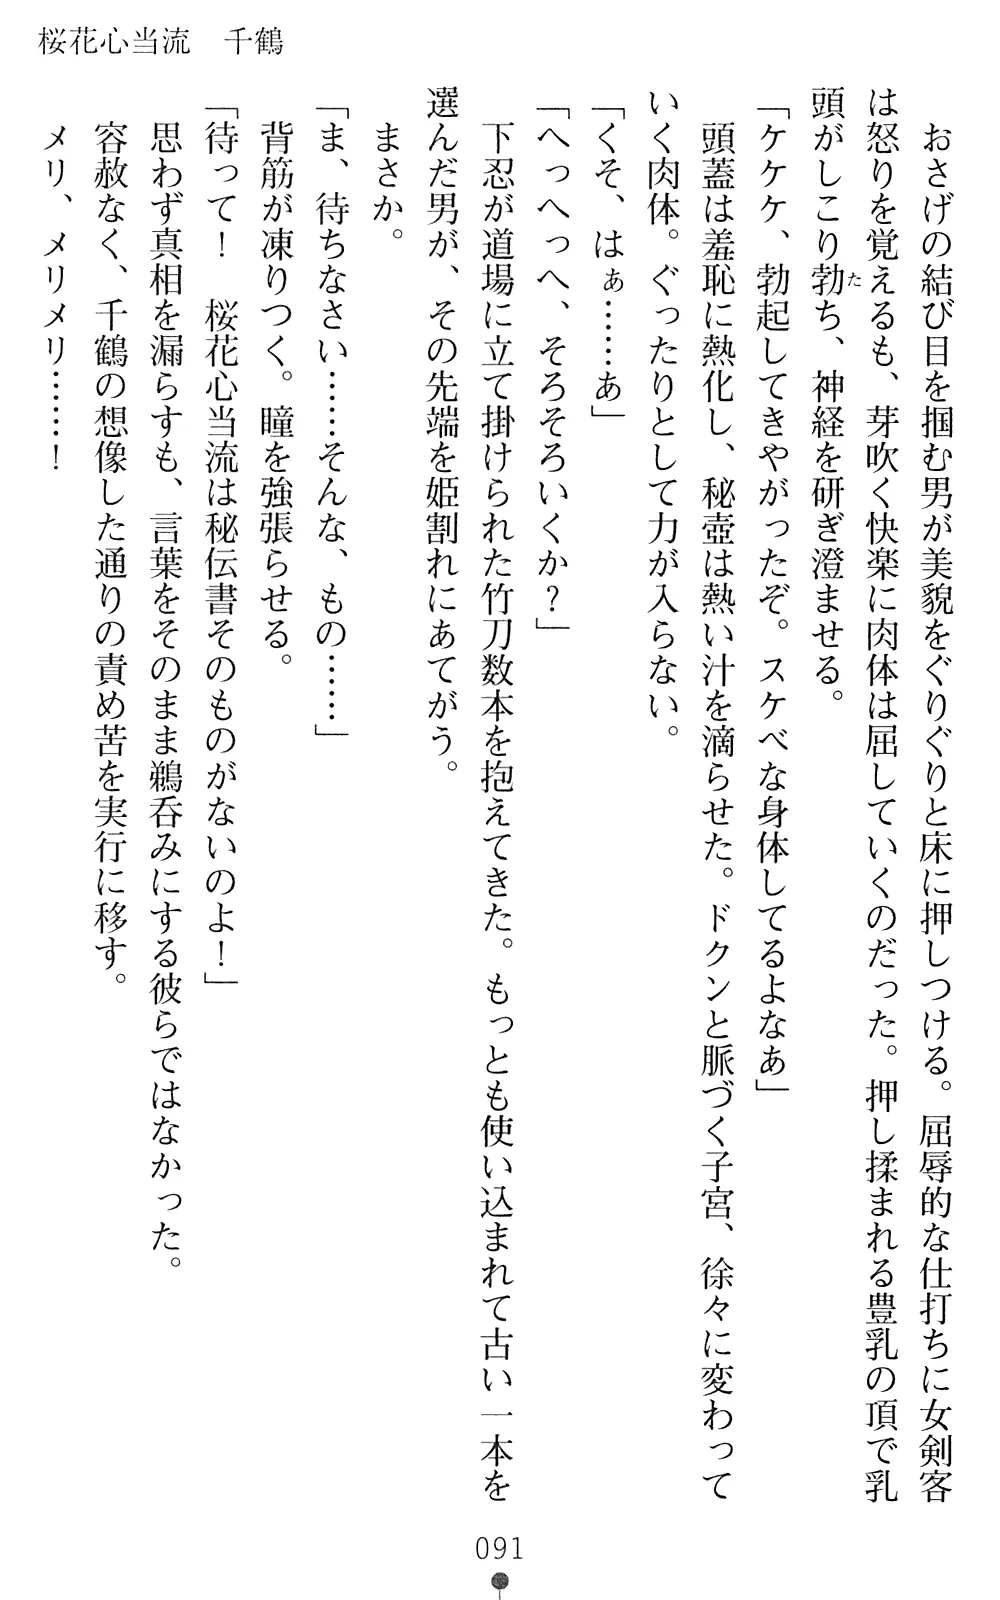 桜花心当流　千鶴
　おさげの結び目を掴む男が美貌をぐりぐりと床に押しつける。屈辱的な仕打ちに女剣客
は怒りを覚えるも、芽吹く快楽に肉体は屈していくのだった。押し揉まれる豊乳の頂で乳
頭がしこり勃ち、神経を研ぎ澄ませる。
た
「ケケケ、勃起してきやがったぞ。スケベな身体してるよなあ」
　頭蓋は羞恥に熱化し、秘壺は熱い汁を滴らせた。ドクンと脈づく子宮、徐々に変わって
いく肉体。ぐったりとして力が入らない。
「くそ、はぁ……あ」
「へっへっへ、そろそろいくか？」
　下忍が道場に立て掛けられた竹刀数本を抱えてきた。もっとも使い込まれて古い一本を
選んだ男が、その先端を姫割れにあてがう。
　まさか。
「ま、待ちなさい……そんな、もの……」
　背筋が凍りつく。瞳を強張らせる。
「待って！　桜花心当流は秘伝書そのものがないのよ！」
　思わず真相を漏らすも、言葉をそのまま鵜呑みにする彼らではなかった。
　容赦なく、千鶴の想像した通りの責め苦を実行に移す。
　メリ、メリメリ……！
091